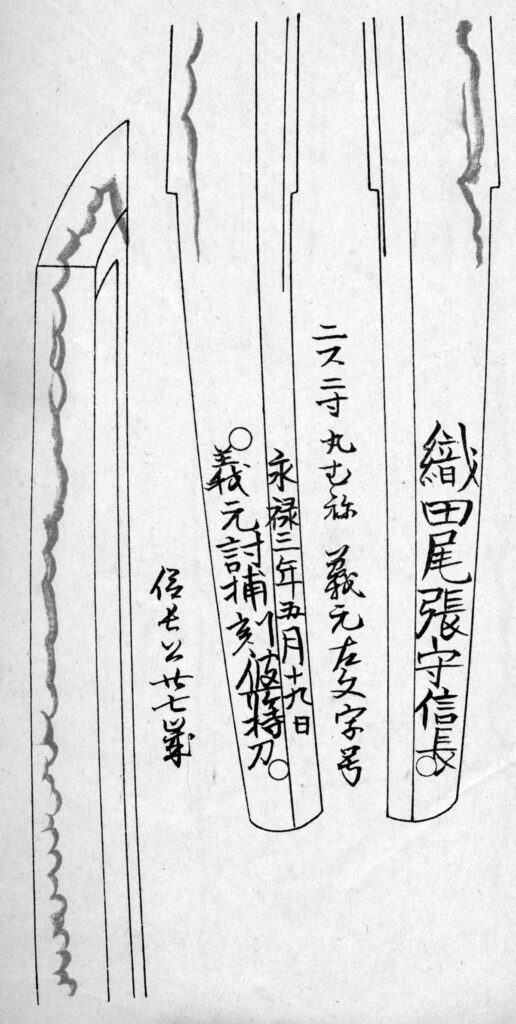 織田尾張守信長
二尺二寸 丸むね 義元左文字号
永禄三年五月十九日
義元討捕刻彼所持刀
信長公廿七歳